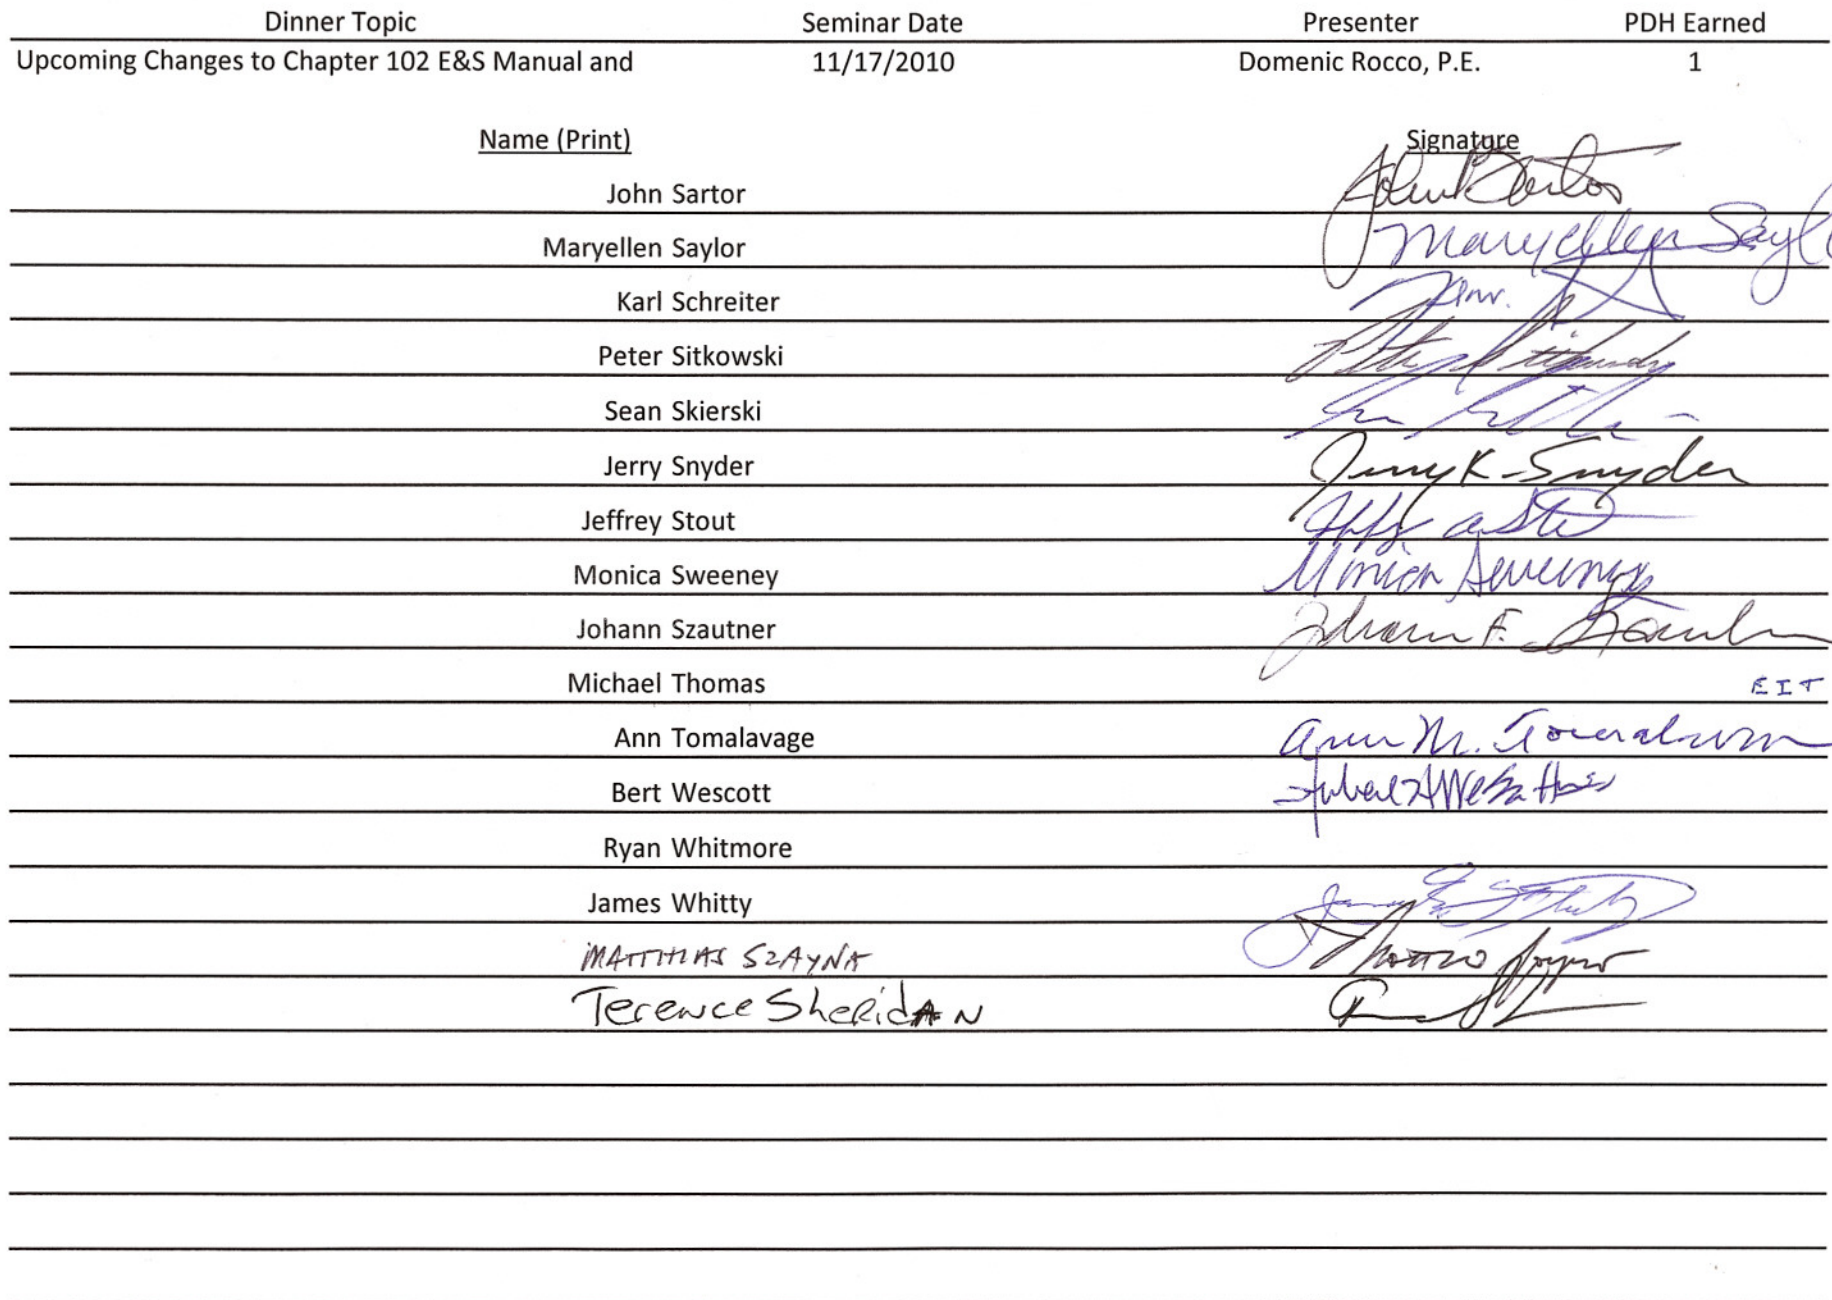 Dinner Topic Seminar Date Presenter PDH Earned
Upcoming Changes to Chapter 102 E&S Manual and 11/17/2010 Domenic Rocco, P.E. 1
Name (Print) Signature
John Sartor
Maryellen Saylor Maryellen Sayl
Karl Schreiter
Peter Sitkowski
Sean Skierski
Jerry Snyder Jerry K. Snyder
Jeffrey Stout
Monica Sweeney Monica Sweeney
Johann Szautner Johann F.
Michael Thomas EIT
Ann Tomalavage Ann M.
Bert Wescott
Ryan Whitmore
James Whitty
MATTHIAS SZAYNA
Terence SheridAN